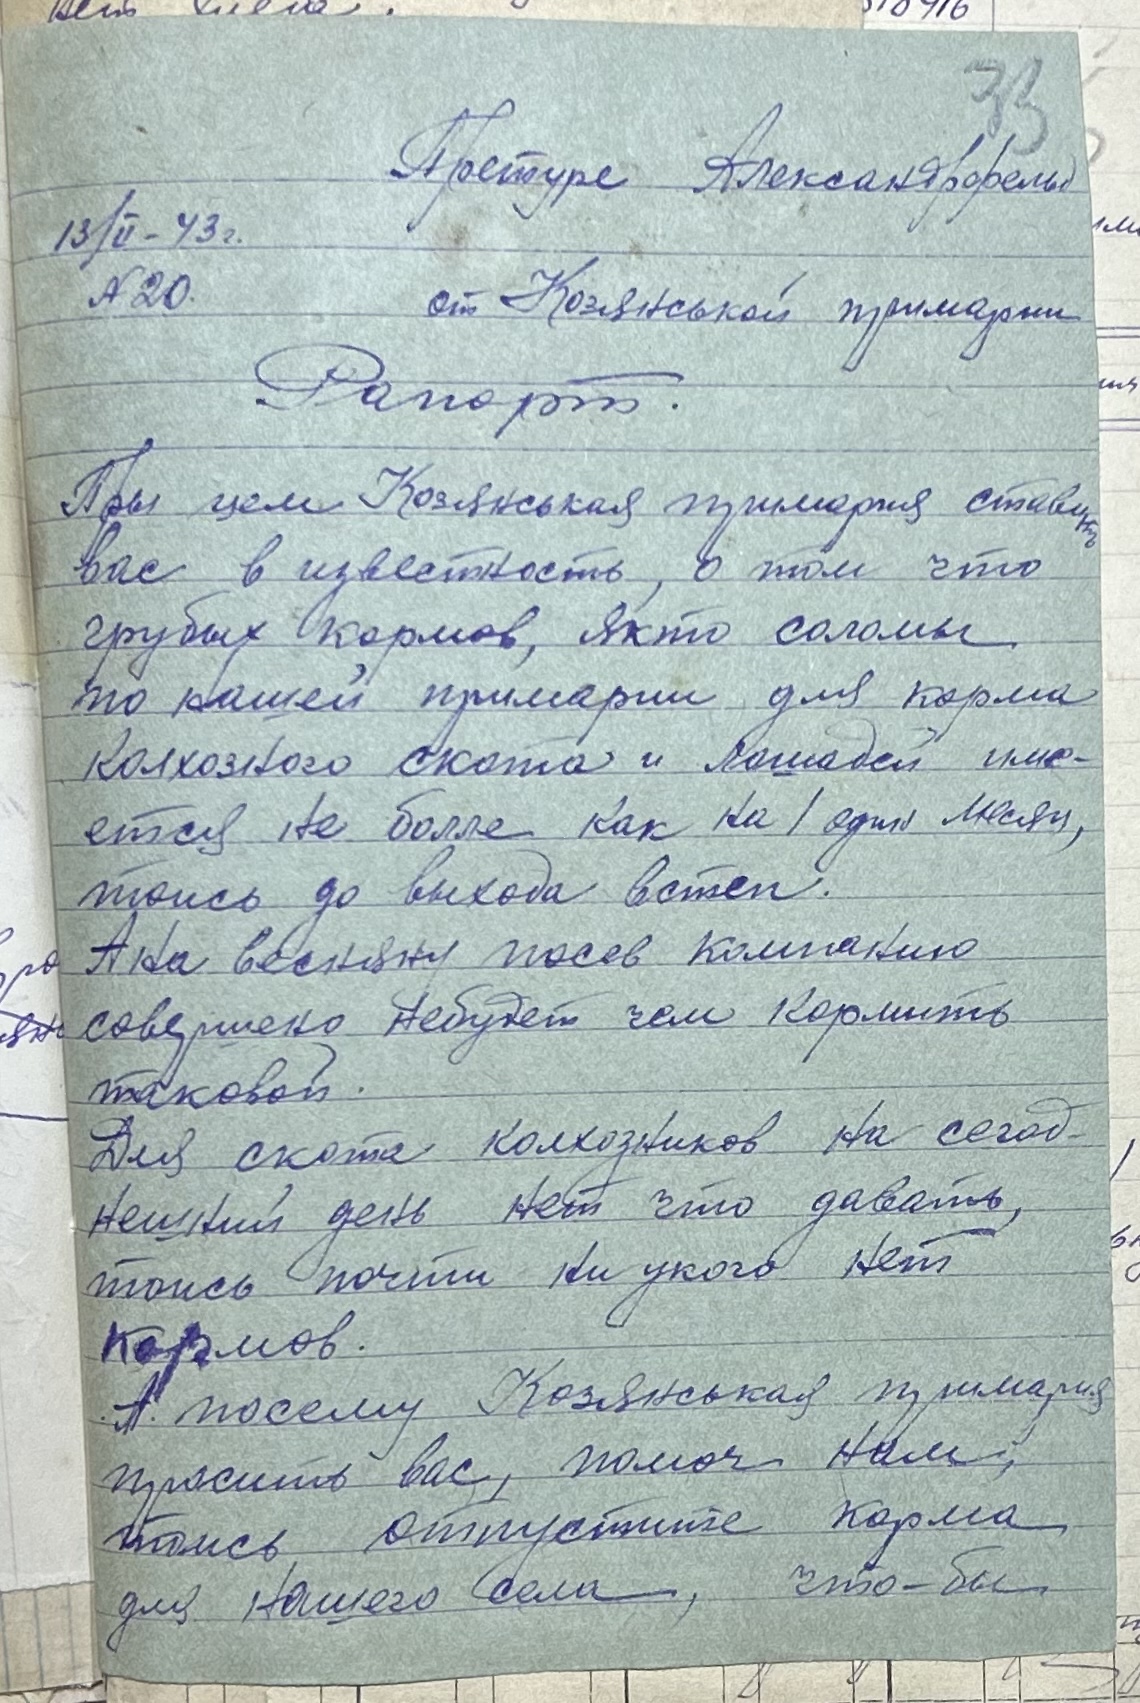 33
Претуре Александрфельд
13/II-43 г.
№ 20.
от Козянськой примарии
Рапорт.
Пры цем Козянськая примария ставить
вас в известность, о том что
грубых кормов, якто соломы
по нашей примарии для корма
колхозного скота и лошадей име-
ется не болле как на 1 один месяц,
тоись до выхода встеп.
А на весняну посев компанию
совершено небудет чем кормить
таковой.
Для скота колхозников на сегод-
нешний день нет что давать,
тоись почти ни укого нет
кормов.
А посему Козянськая примария
просить вас, помоч нам,
тоись отпустите корма
для нашего села, что-бы